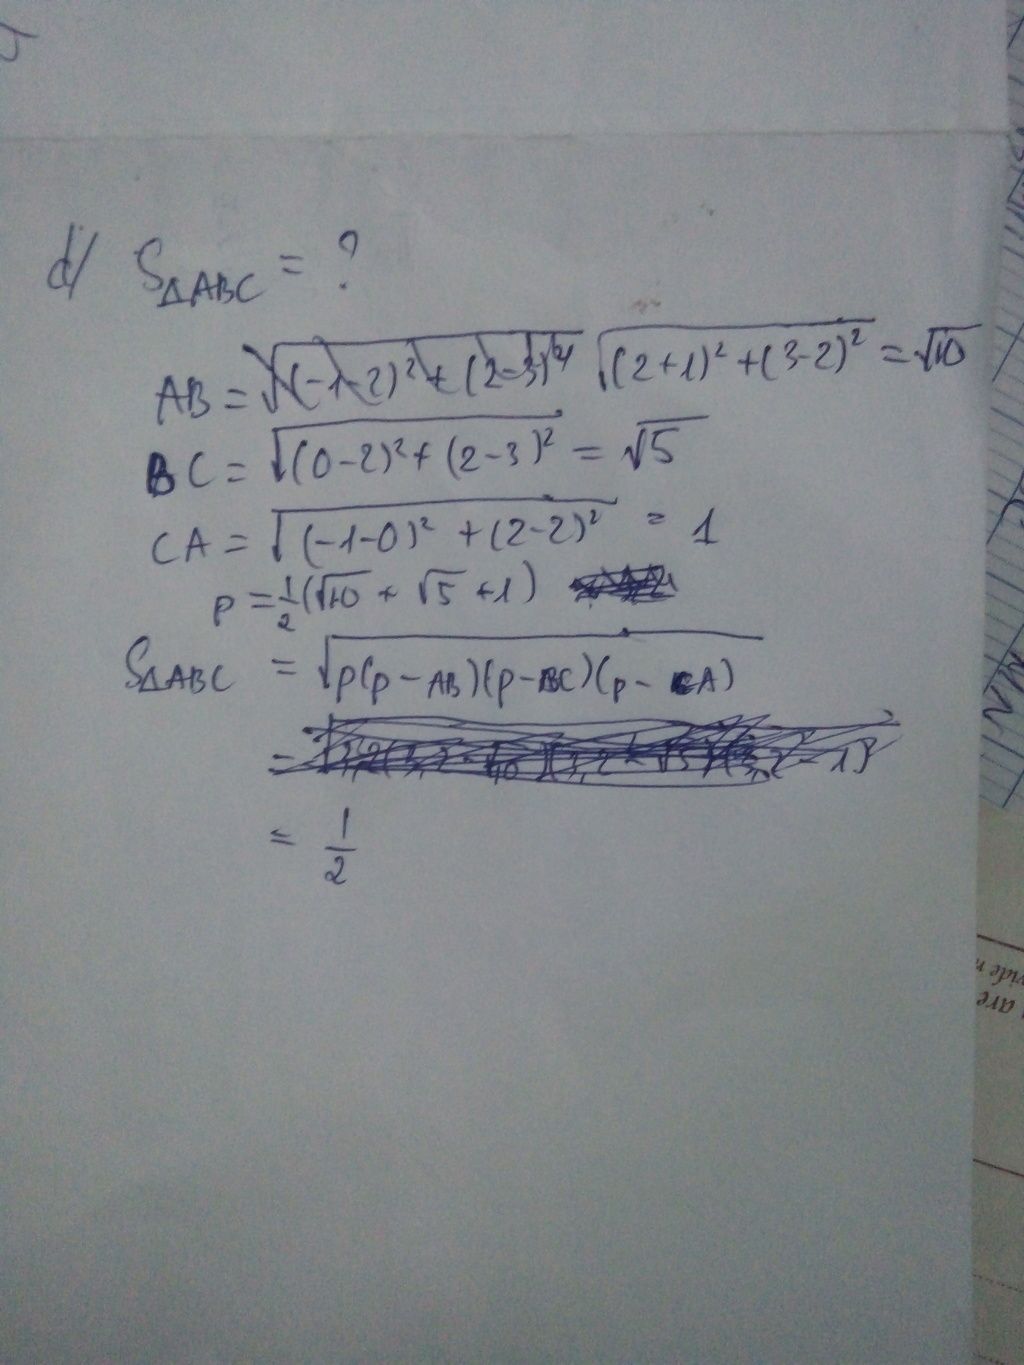 d/ S△ABC = ?
AB = √((-1-2)² + (2-3)²) √((2+1)² + (3-2)²) = √10
BC = √((0-2)² + (2-3)²) = √5
CA = √((-1-0)² + (2-2)²) = 1
p = 1/2 (√10 + √5 + 1)
S△ABC = √(p(p - AB)(p - BC)(p - CA))
= √(3,2(3,2 - √10)(3,2 - √5)(3,2 - 1))
= 1/2
vide
are